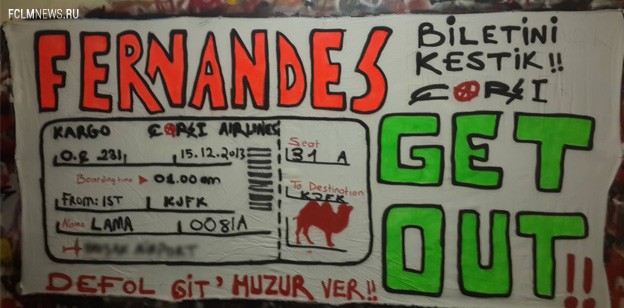 FCLMNEWS.RU
FERNANDES
BİLETİNİ
KESTİK!!
ÇARŞI
GET
OUT!!
KARGO ÇARŞI AIRLINES
15.12.2013
Boarding time 01.00 am
FROM: IST KJFK
Name LAMA 0081A
Seat
31 A
To Destination
KJFK
DEFOL GİT' HUZUR VER!!